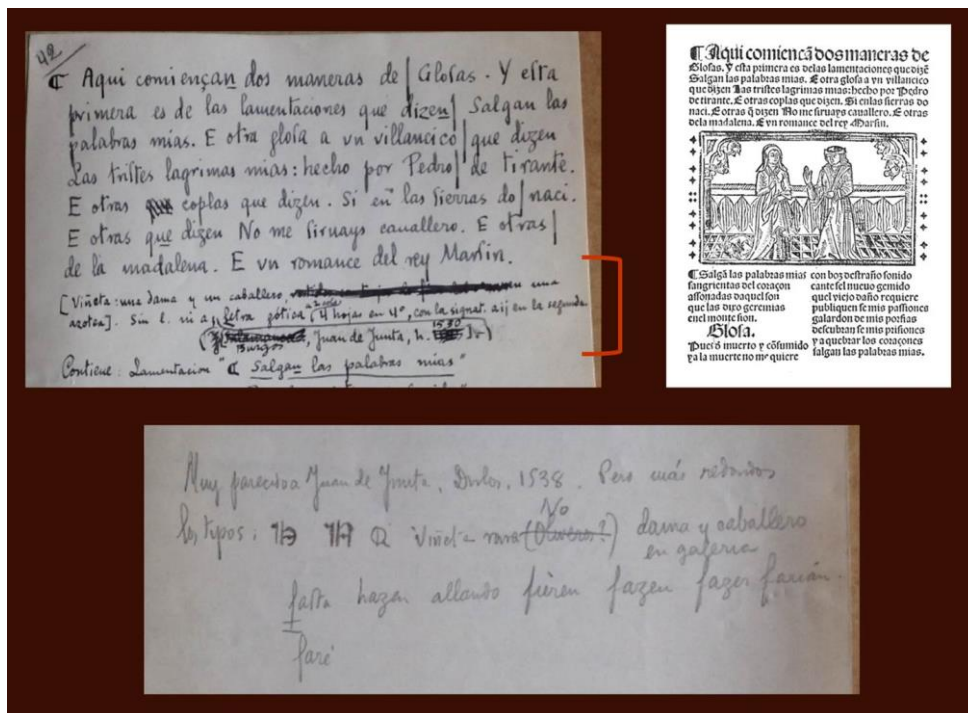 42
₵ Aqui comiençan dos maneras de | Glosas. Y esta
primera es de las lamentaciones que dizen | Salgan las
palabras mias. E otra glosa a vn villancico | que dizen
Las tristes lagrimas mias: hecho por Pedro | de tirante.
E otras coplas que dizen. Si en las sierras do | naci.
E otras que dizen No me siruays cauallero. E otras |
de la madalena. E vn romance del rey Marsin.
[Viñeta: una dama y un caballero, en una
azotea]. Sin l. ni a. Letra gótica, 4 hojas en 4º, con la signat. aij en la segunda
Burgos, Juan de Junta, h. 1530
Contiene: Lamentacion "₵ Salgan las palabras mias"
₵ Aqui comiencã dos maneras de
Glosas. Y esta primera es delas lamentaciones que dizẽ
Salgan las palabras mias. E otra glosa a vn villancico
que dizen Las tristes lagrimas mias: hecho por Pedro
de tirante. E otras coplas que dizen. Si enlas sierras do
naci. E otras q̃ dizen No me siruays cauallero. E otras
dela madalena. E vn romance del rey Marsin.
₵ Salgã las palabras mias
sangrientas del coraçon
assonadas daquel son
que las dixo geremias
enel monte sion.
Glosa.
Pues muerto y cõsumido
ya la muerte no me quiere
con boz destraño sonido
cante el nueuo gemido
quel viejo daño requiere
publiquen se mis passiones
galardon de mis porfias
descubran se mis prisiones
y a quebrar los coraçones
salgan las palabras mias.
Muy parecido a Juan de Junta, Burlos, 1538. Pero más redondos
los tipos: Viñeta rara (Oliveros?) No dama y caballero
en galeria
fasta hazen allando fieren fazen fazer farian.
faré